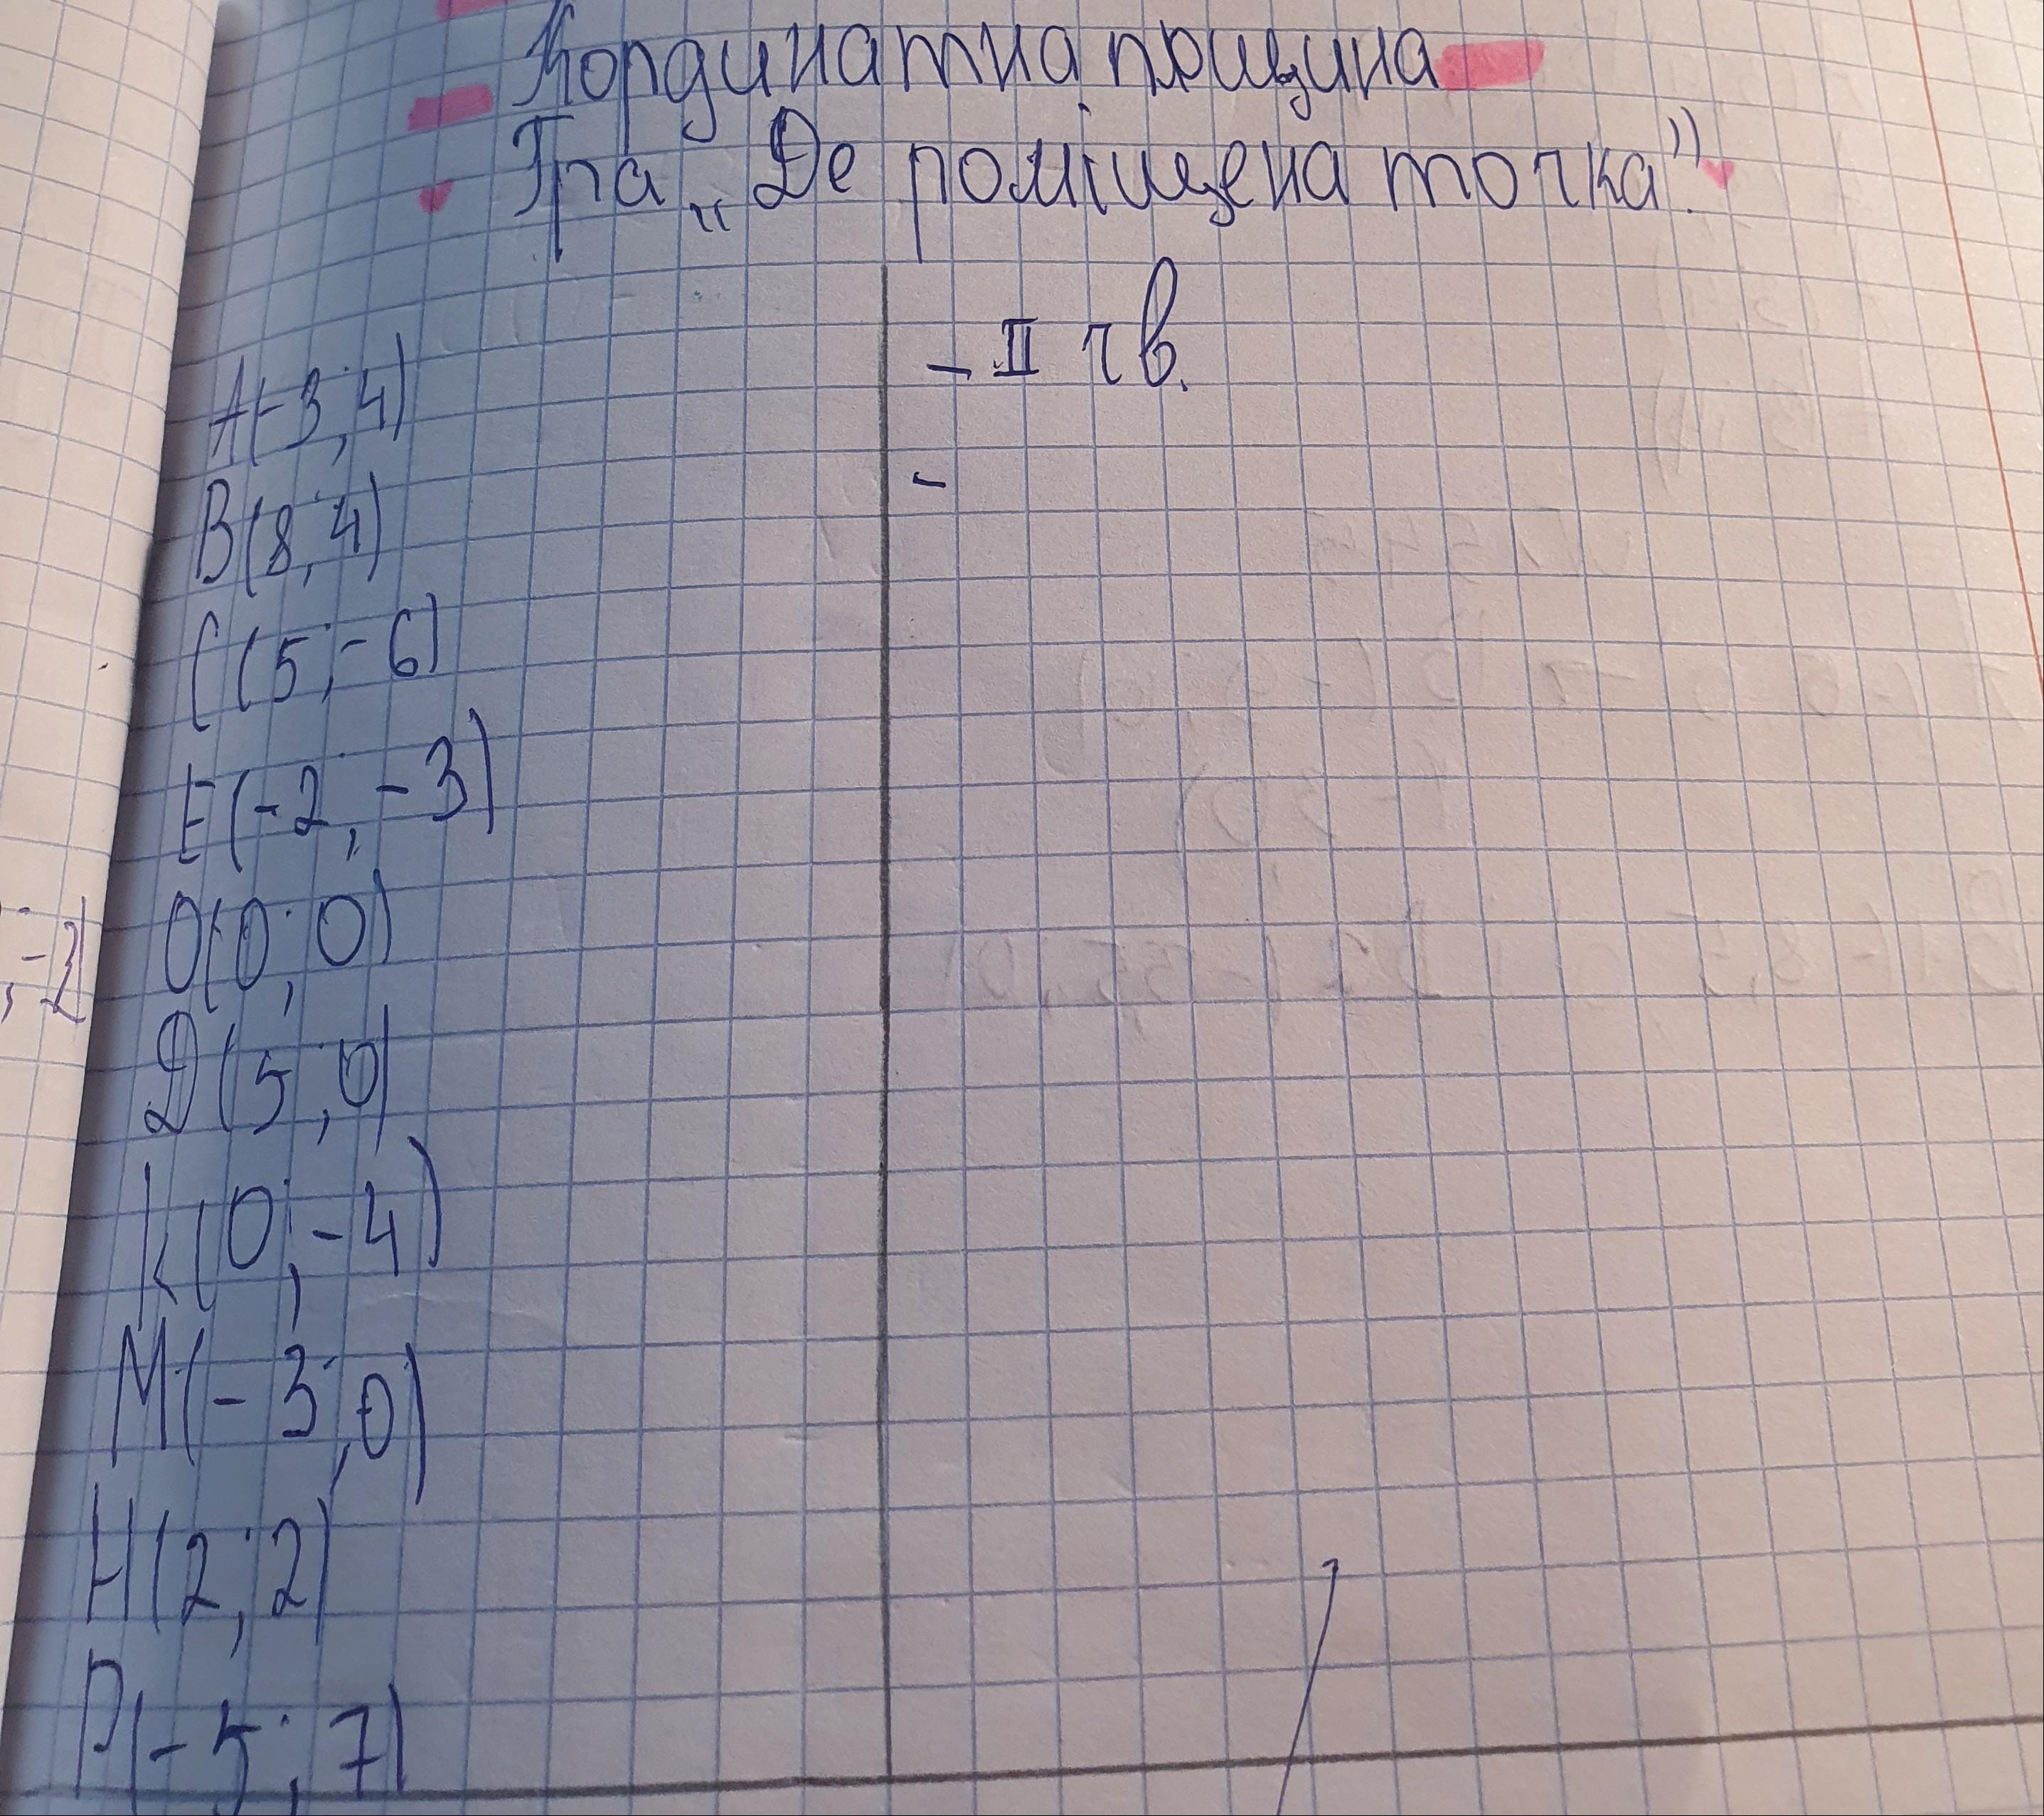 Кординатна прощина
Гра „Де поміщена точка".
A(-3; 4) - II чв.
B(8; 4) -
C(5; -6)
E(-2; -3)
O(0; 0)
; -2)
D(5; 0)
K(0; -4)
M(-3; 0)
H(2; 2)
P(-5; 7)